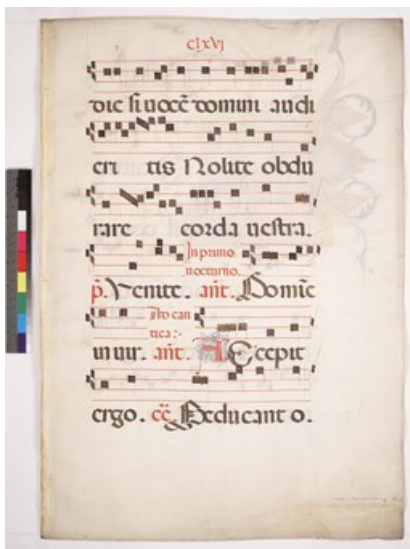 clxvj
die si vocē domini audi
eri tis Nolite obdu
rare corda vestra.
In primo
nocturno.
p̄. Venite. ant̄. Domine
tica:-
in vir. ant̄. Accepit
ergo. Deducant o.